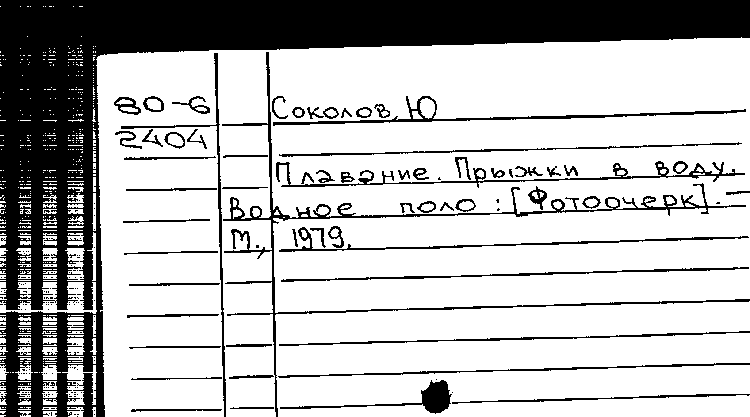 80-6
2404
Соколов, Ю
Плавание. Прыжки в воду.
Водное поло : [Фотоочерк]. —
М., 1979.